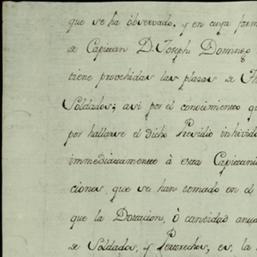 que se ha observado, y en cuya form
de Capitan D. Joseph Doming
tiene provehidas las plazas de
Soldados; asi por el conocimiento q
por hallarse el dicho Presidio inhivid
immediatamente à esta Capitani
ciones, que se han tomado en el
que la Dotacion, ò cantidad anua
de Soldados, y Pertrechos, es, la